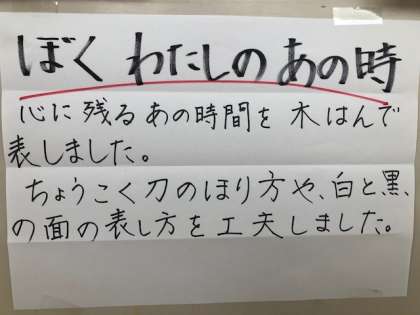 ぼく わたしの あの時
心に残るあの時間を木はんで
表しました。
ちょうこく刀のほり方や、白と黒、
の面の表し方を工夫しました。